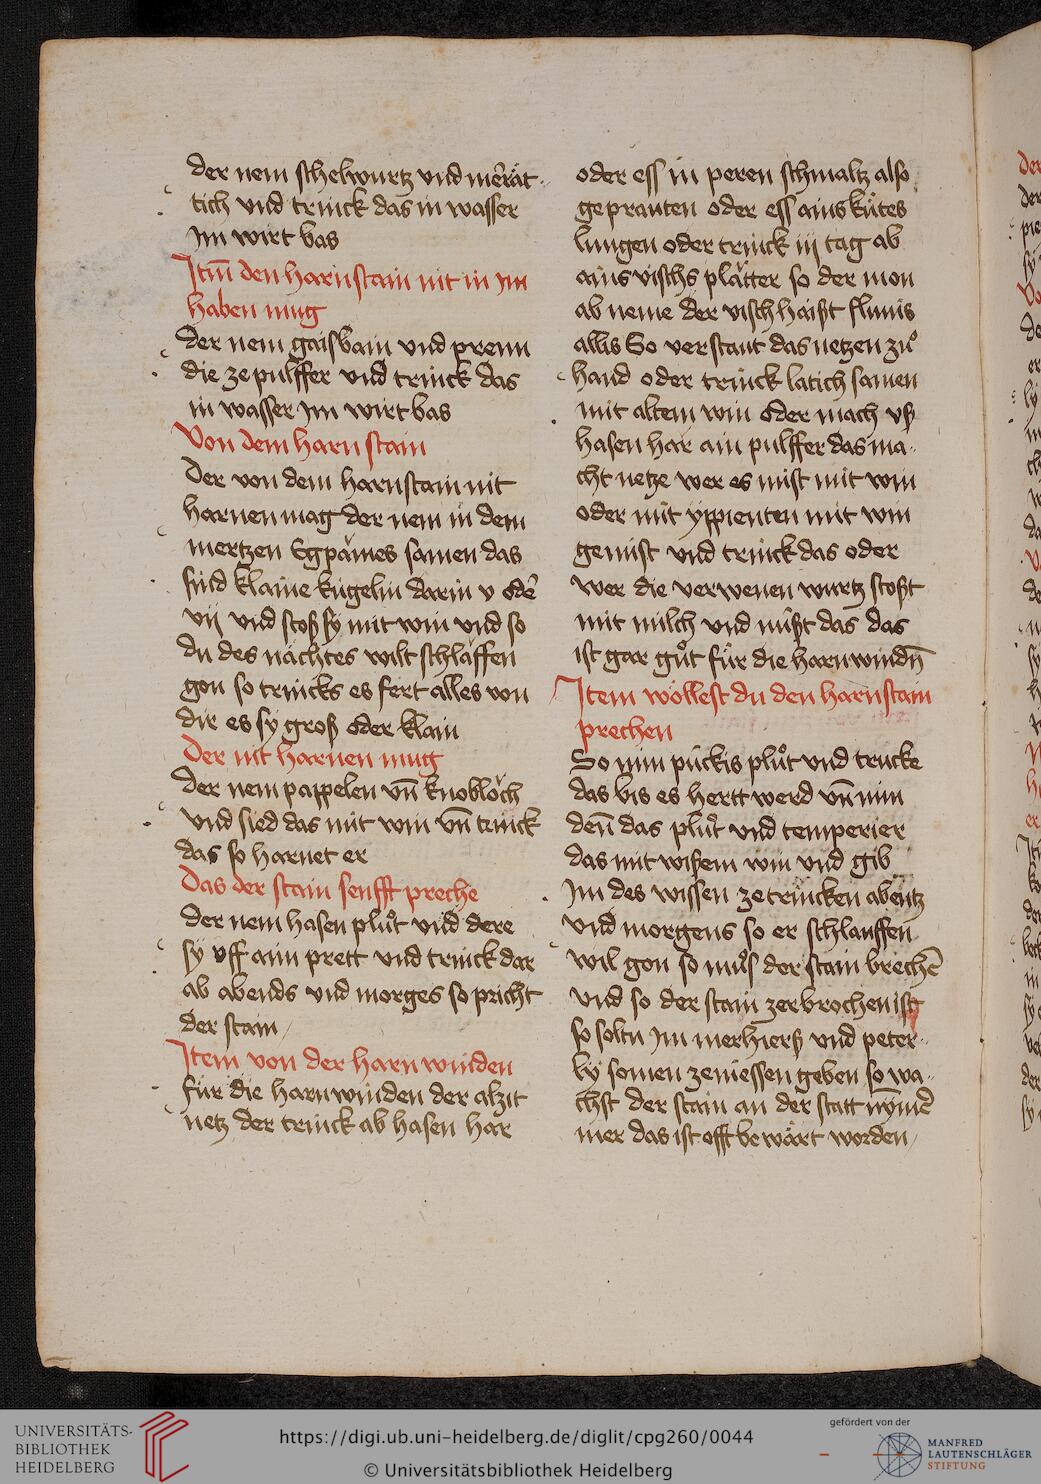 der nem schelwurtz vnd merät-
tich vnd trinck das in wasser
Im wirt bas
Itm̄ den harnstain nit in Im
haben mug
der nem gaisbain vnd prenn
die ze pulffer vnd trinck das
in wasser Im wirt bas
Von dem harn stain
Der von dem harnstain nit
harnen mag der nem in dem
mertzen Egpämes samen das
sind klaine kügelin darin v odē
vij vnd stoß sy mit win vnd so
du des nächtes wilt schlaffen
gon so trincks es fert alles von
dir es sy groß oder klain
Der nit harnen mug
der nem pappelen vn̄ knobloch
vnd sied das mit win vn̄ trinck
das so harnet er
Das der stain senfft preche
der nem hasen plůt vnd dere
sy vff aim prett vnd trinck dar
ab abends vnd morges so pricht
der stain /
Item von der harn winden
für die harnwinden der alzit
netz der trinck ab hasen har
oder ess in peren schmaltz also
gepranten oder ess ains kütes
lungen oder trinck iij tag ab
ains vischs plätter so der mon
ab neme der visch haißt flunis
allis So verstant das netzen zů
hand oder trinck latich samen
mit altem win oder mach vß
hasen har ain pulffer das ma-
cht netze wer es mist mit win
oder mit yppienten mit win
gemist vnd trinck das oder
wer die verwenen wurtz stoßt
mit milch vnd nüßt das das
ist gar gůt für die harnwindn̄
Item wöllest du den harnstain
prechen
So nim pückis plůt vnd trucke
das bis es hertt werd vn̄ nim
den̄ das plůt vnd temperier
das mit wißem win vnd gib
Im des wissen ze trincken abentz
vnd morgens so er schlauffen
wil gon so můs der stain brechē
vnd so der stain zerbrochen ist
so soltu Im merhierß vnd peter-
ly somen ze niessen geben so wa-
chst der stain an der statt nym̄e
mer das ist offt bewärt worden /
UNIVERSITÄTS-
BIBLIOTHEK
HEIDELBERG
https://digi.ub.uni-heidelberg.de/diglit/cpg260/0044
© Universitätsbibliothek Heidelberg
gefördert von der
MANFRED
LAUTENSCHLÄGER
STIFTUNG